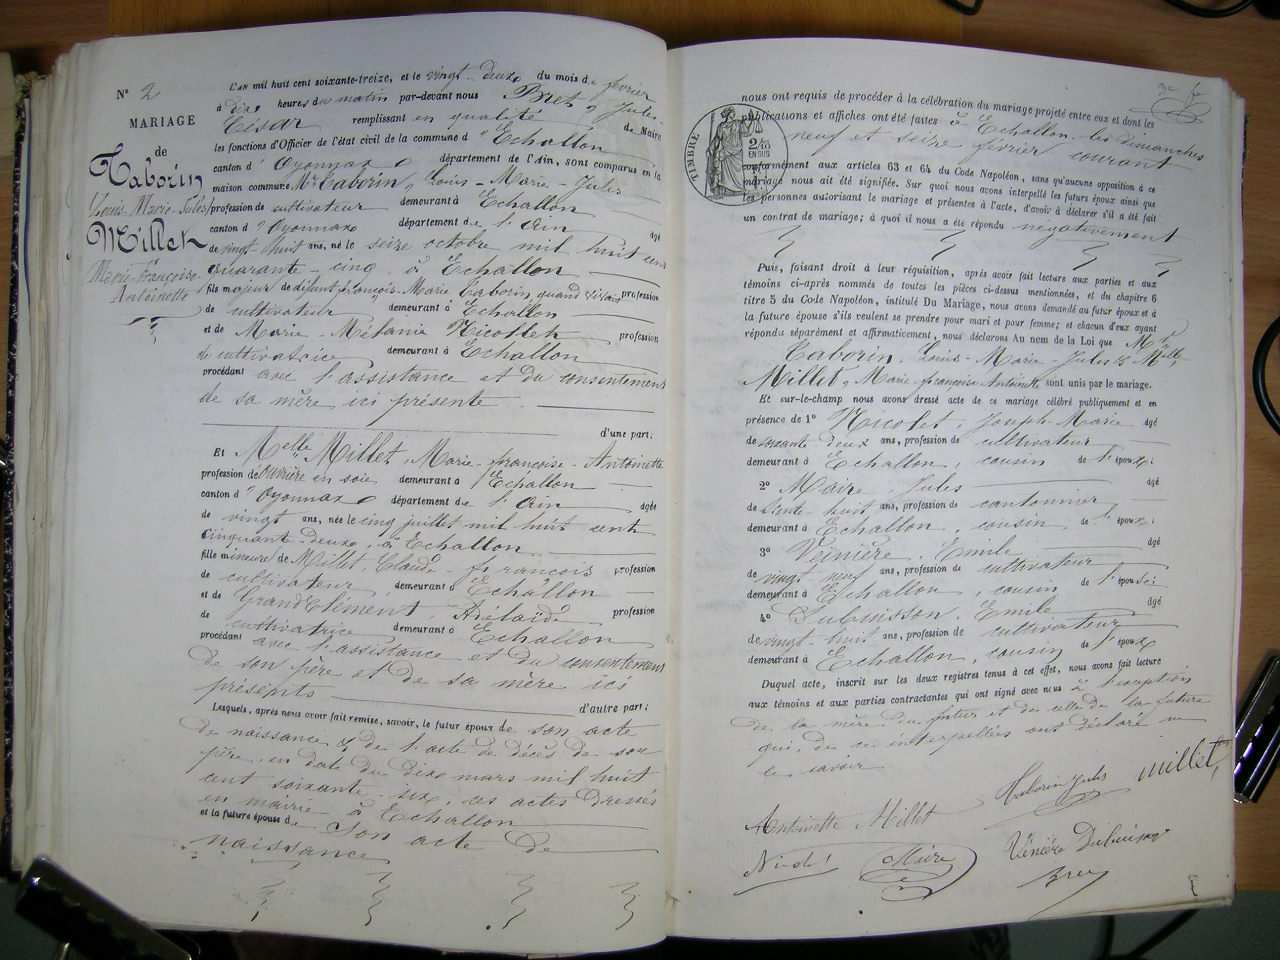 N° 2
MARIAGE
de
Taborin
Louis-Marie-Jules
Millet
Marie-françoise-
Antoinette
L'an mil huit cent soixante-treize, et le vingt-deux du mois de février
à dix heures du matin par-devant nous Bret, Jules-
César remplissant en qualité de Maire
les fonctions d'Officier de l'état civil de la commune d'Echallon
canton d'Oyonnax département de l'Ain, sont comparus en la
maison commune Mr Taborin, Louis-Marie-Jules
profession de cultivateur demeurant à Echallon
canton d'Oyonnax département de l'Ain âgé
de vingt-huit ans, né le seize octobre mil huit cent
quarante-cinq à Echallon
fils majeur de défunt françois-Marie Taborin, quand vivait profession
de cultivateur demeurant à Echallon
et de Marie-Mélanie Nicollet profession
de cultivatrice demeurant à Echallon
procédant avec l'assistance et du consentement
de sa mère ici présente
d'une part;
Et Melle Millet, Marie-françoise-Antoinette
profession de ouvrière en soie demeurant à Echallon
canton d'Oyonnax département de l'Ain âgée
de vingt ans, née le cinq juillet mil huit cent
cinquante-deux, à Echallon
fille mineure de Millet, Claude-françois profession
de cultivateur demeurant à Echallon
et de GrandClément Adélaïde profession
de cultivatrice demeurant à Echallon
procédant avec l'assistance et du consentement
de son père et de sa mère ici
présents d'autre part;
Lesquels, après nous avoir fait remise, savoir, le futur époux de son acte
de naissance & de l'acte de décès de son
père en date du dix mars mil huit
cent soixante-six, ces actes dressés
en mairie à Echallon
et la future épouse de son acte de
naissance
nous ont requis de procéder à la célébration du mariage projeté entre eux et dont les
publications et affiches ont été faites à Echallon les dimanches
neuf et seize février courant
TIMBRE
2/10
EN SUS
conformément aux articles 63 et 64 du Code Napoléon, sans qu'aucune opposition à ce
mariage nous ait été signifiée. Sur quoi nous avons interpellé les futurs époux ainsi que
les personnes autorisant le mariage et présentes à l'acte, d'avoir à déclarer s'il a été fait
un contrat de mariage; à quoi il nous a été répondu négativement
Puis, faisant droit à leur réquisition, après avoir fait lecture aux parties et aux
témoins ci-après nommés de toutes les pièces ci-dessus mentionnées, et du chapitre 6
titre 5 du Code Napoléon, intitulé Du Mariage, nous avons demandé au futur époux et à
la future épouse s'ils veulent se prendre pour mari et pour femme; et chacun d'eux ayant
répondu séparément et affirmativement, nous déclarons Au nom de la Loi que Mr
Taborin, Louis-Marie-Jules & Melle
Millet, Marie-françoise Antoinette sont unis par le mariage.
Et sur-le-champ nous avons dressé acte de ce mariage célébré publiquement et en
présence de 1° Nicolet, Joseph-Marie âgé
de soixante-deux ans, profession de cultivateur
demeurant à Echallon, cousin de l'époux;
2° Maire, Jules âgé
de trente-huit ans, profession de cantonnier
demeurant à Echallon, cousin de l'époux;
3° Veinière, Emile âgé
de vingt-neuf ans, profession de cultivateur
demeurant à Echallon, cousin de l'épouse;
4° Dubuisson, Emile âgé
de vingt-huit ans, profession de cultivateur
demeurant à Echallon, cousin de l'époux
Duquel acte, inscrit sur les deux registres tenus à cet effet, nous avons fait lecture
aux témoins et aux parties contractantes qui ont signé avec nous à l'exception
de la mère du futur et de celle de la future
qui, de ce interpellées ont déclaré ne
le savoir
Antoinette Millet Taborin Jules Millet
Maire Vénière Dubuisson
Bret